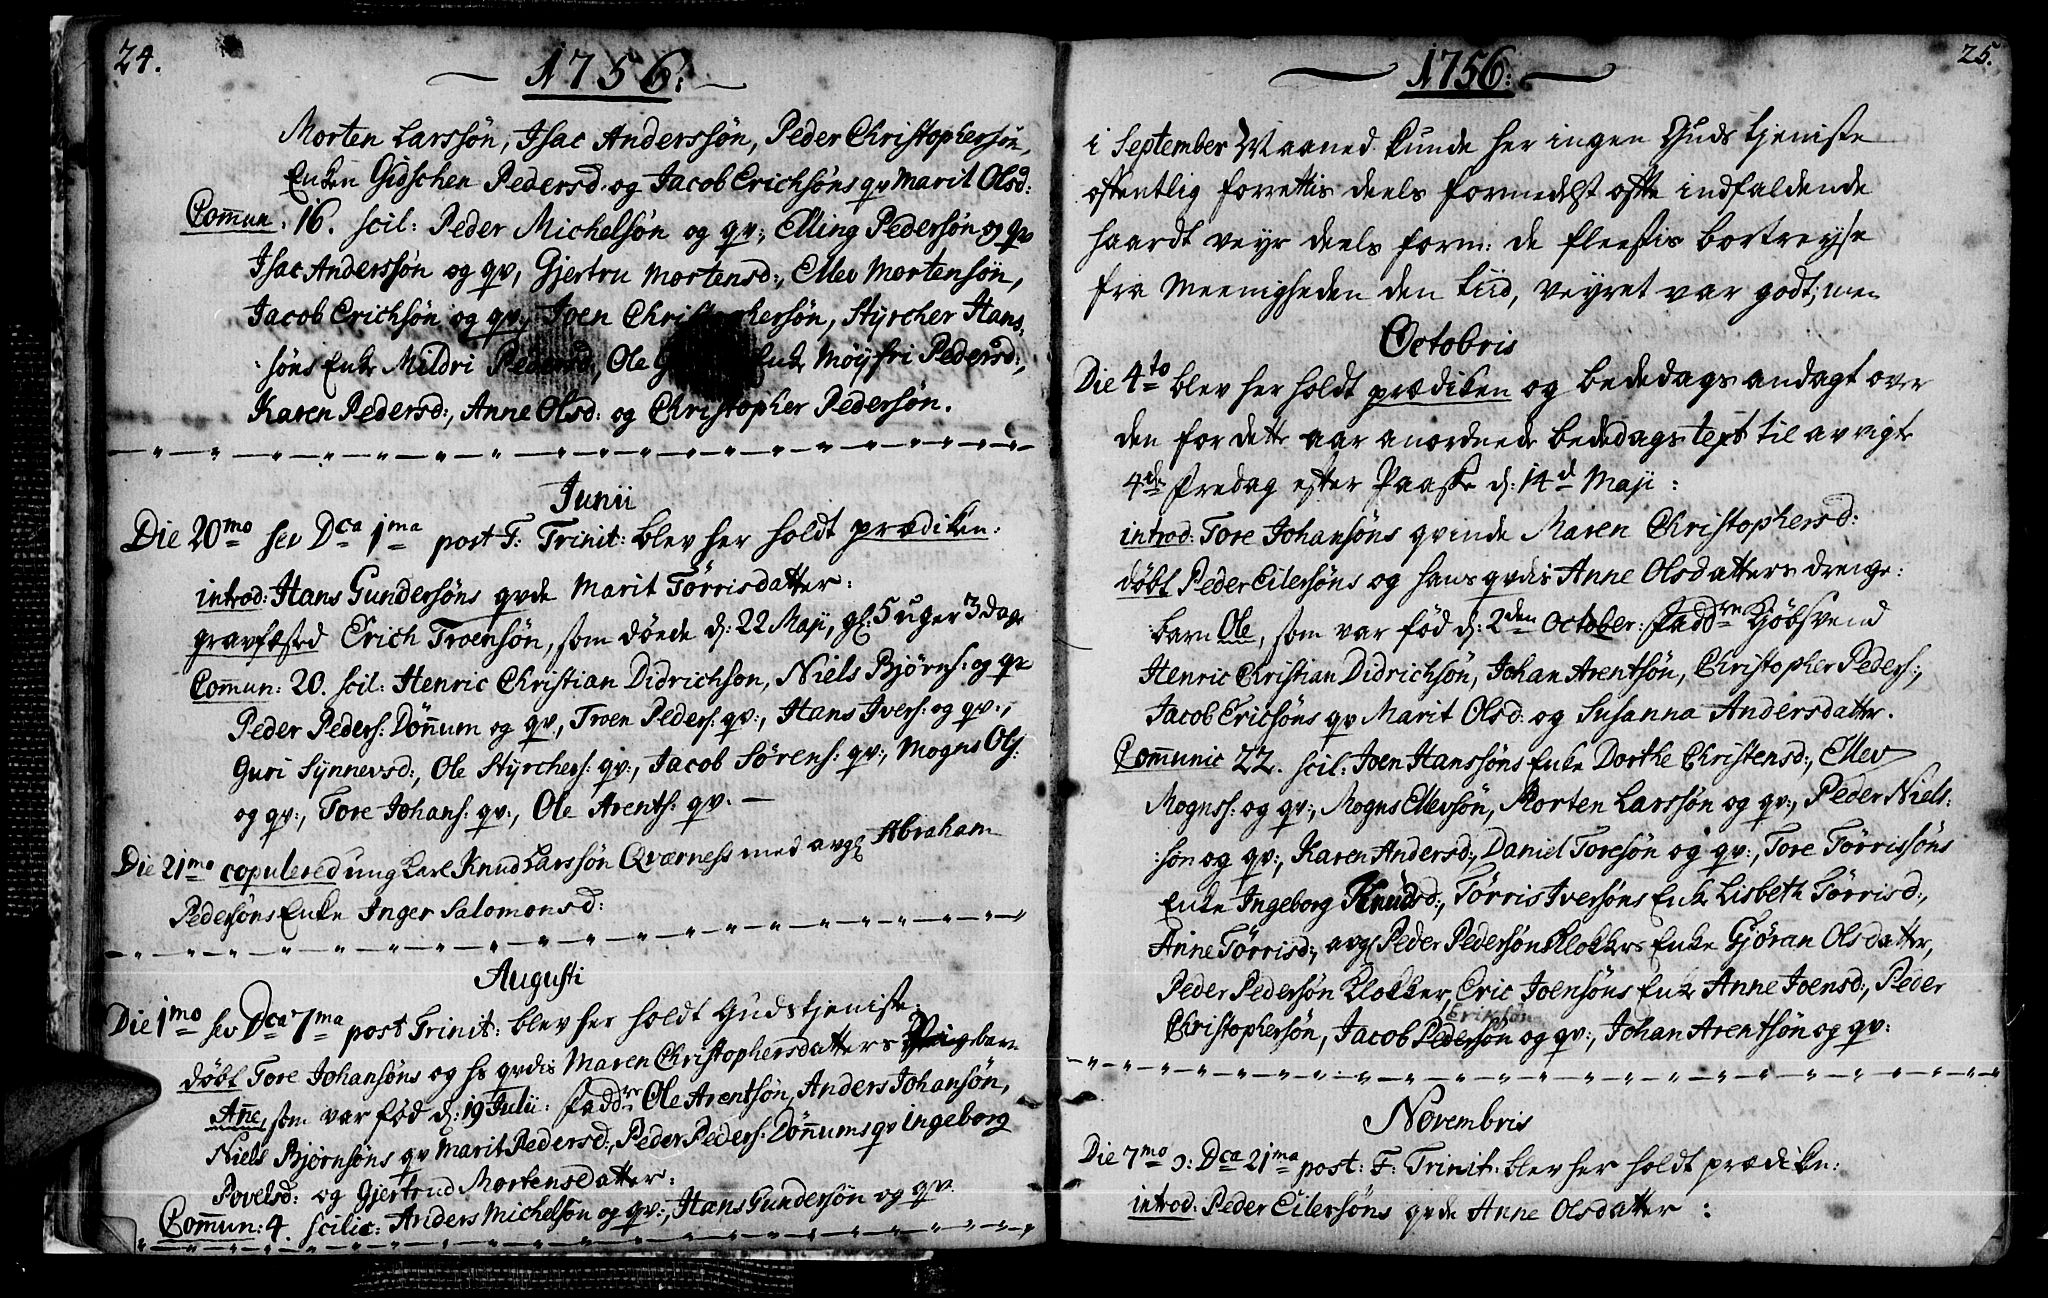 24.
1756:
Morten Larssøn, Isac Anderssøn, Peder Christophersøn,
Enken Gidschen Pedersd. og Jacob Erichsøns qv Marit Olsd:
Com̅un. 16. scil: Peder Michelsøn og qv:, Elling Pedersøn og qv
Isac Anderssøn og qv, Gjertru Mortensd:, Ellev Mortensøn,
Jacob Erichsøn og qv:, Joen Christophersøn, Styrcher Hans-
søns Enke Mildri Pedersd:, Ole Enke Møyfri Pedersd:,
Karen Pedersd:, Anne Olsd: og Christopher Pedersøn.
Junii
Die 20mo sev Dca 1ma post F: Trinit: blev her holdt prædiken:
introd: Hans Gundersøns qvde Marit Tørrisdatter:
gravfæsted Erich Troensøn, som døede d: 22 Maji, gl: 5 uger 3 dage
Com̅un: 20. scil: Henric Christian Didrichson, Niels Bjørns: og qv
Peder Peders: Døn̅um og qv, Troen Peders: qv:, Hans Ivers: og qv:,
Guri Synnevsd:, Ole Styrchers: qv:, Jacob Sørens: qv:, Mogns Ols:
og qv:, Tore Johans: qv:, Ole Arents: qv. —
Die 21mo copulered ung Karl Knud Larssøn Qværness med avgl Abraham
Pedersøns Enke Inger Salomonsd:
Augusti
Die 1mo sev Dca 7ma post Trinit: blev her holdt Gudstjeniste:
døbt Tore Johansøns og hs qvdis Maren Christophersdatters Pigebarn
An̅e, som var fød d: 19 Julii: Faddre Ole Arentsøn, Anders Johansøn,
Niels Bjørnsøns qv Marit Pedersd:, Peder Peders: Døn̅ums qv Ingeborg
Povelsd: og Gjertrud Mortensdatter:
Com̅un: 4. scilic: Anders Michelsøn og qv:, Hans Gundersøn og qv.
25.
1756:
i September Maaned kunde her ingen Guds tjeniste
ofentlig forrettis deels formedelst ofte indfaldende
haardt veyr deels form: de fleestis bortreyse
fra Meenigheden den Tiid, veyret var godt; men
Octobris
Die 4to blev her holdt prædiken og bededags andagt over
den for dette aar anordnede bededags text til avvigte
4de Fredag efter Paaske d: 14d Maji:
introd: Tore Johansøns qvinde Maren Christophersd:
døbt Peder Eilersøns og hans qvdis Anne Olsdatters drenge:
barn Ole, som var fød d: 2den October: Faddre Kjøbsvend
Henric Christian Didrichsøn, Johan Arentsøn, Christopher Peders:,
Jacob Ericsøns qv Marit Olsd: og Susanna Andersdatter.
Com̅unic 22. scil: Joen Hanssøns Enke Dorthe Christensd:, Ellev
Mogns: og qv:, Mogns Ellevsøn, Morten Larssøn og qv:, Peder Niels:
:søn og qv:, Karen Andersd:, Daniel Toresøn og qv:, Tore Tørrissøns
Enke Ingeborg Knudsd:, Tørris Iversøns Enke Lisbeth Tørrisd:,
Anne Tørrisd:, avgl Peder Pedersøn Klokkers Enke Gjøran Olsdatter,
Peder Pedersøn Klokker, Eric Joensøns Enke Anne Joensd:, Peder
Eriksøn
Christophersøn, Jacob Pedersøn og qv:, Johan Arentsøn og qv:
Novembris
Die 7mo ɔ: Dca 21ma post: F: Trinit: blev her holdt prædiken:
introd: Peder Eilersøns qvde Anne Olsdatter :